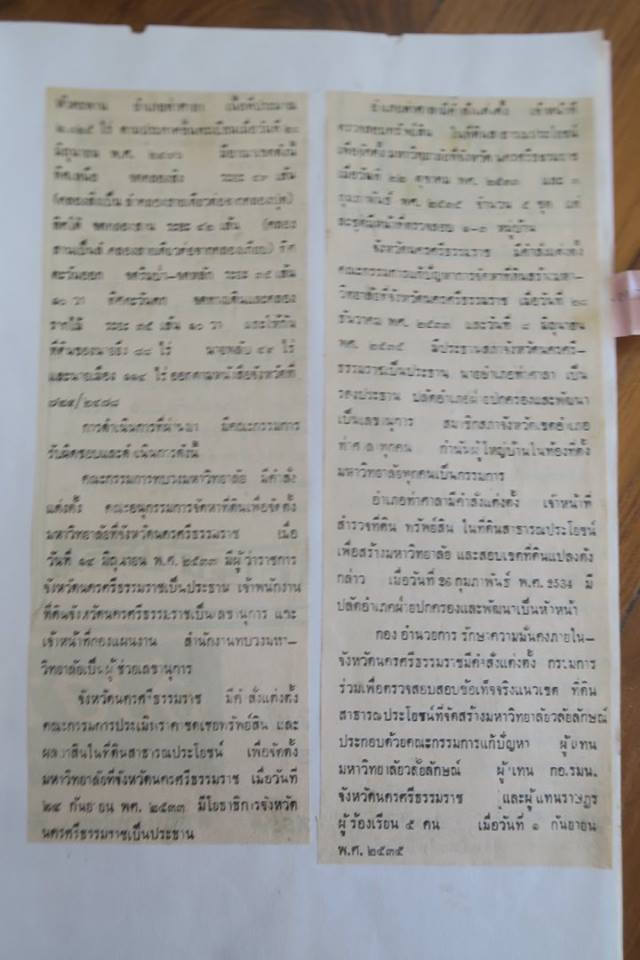 ๒,๐๒๕ ไร่ ตามประกาศขึ้นทะเบียนเมื่อวันที่
มิถุนายน พ.ศ. มีอาณาเขตดังนี้
ทิศเหนือ จดคลองเต็ง ระยะ ๔๓ เส้น
(คลองเต็งเป็นลำคลองสายเดียวต่อจากคลอง
ทิศใต้ จดคลองสาน ระยะ ๔๒ เส้น (คลอง
สานเป็นลำคลองสายเดียวต่อจากคลองเกียบ) ทิศ
ตะวันออก ระยะ ๓๕ เส้น
๑๐ วา ทิศตะวันตก จดทางเดินและคลอง
รากไม้ ระยะ ๓๕ เส้น ๑๐ วา และให้กัน
ที่ดินของนายอึ่ง ๘๘ ไร่ นายพลับ ๔๙ ไร่
และนายเมือง ๑๑๔ ไร่ ออกตามหนังสือจังหวัดที่
๘๒๙/๒๔๘๘
การดำเนินการที่ผ่านมา มีคณะกรรมการ
รับผิดชอบและดำเนินการดังนี้
คณะกรรมการทบวงมหาวิทยาลัย มีคำสั่ง
แต่งตั้ง คณะอนุกรรมการจัดหาที่ดินเพื่อจัดตั้ง
มหาวิทยาลัยที่จังหวัดนครศรีธรรมราช เมื่อ
วันที่ ๑๔ มิถุนายน พ.ศ. ๒๕๓๓ มีผู้ว่าราชการ
จังหวัดนครศรีธรรมราชเป็นประธาน เจ้าพนักงาน
ที่ดินจังหวัดนครศรีธรรมราชเป็นเลขานุการ และ
เจ้าหน้าที่กองแผนงาน สำนักงานทบวงมหา-
วิทยาลัยเป็นผู้ช่วยเลขานุการ
จังหวัดนครศรีธรรมราช มีคำสั่งแต่งตั้ง
คณะกรรมการประเมินราคาชดเชยทรัพย์สิน และ
ผลอาสินในที่ดินสาธารณประโยชน์ เพื่อจัดตั้ง
มหาวิทยาลัยที่จังหวัดนครศรีธรรมราช เมื่อวันที่
๒๔ กันยายน พ.ศ. ๒๕๓๓ มีโยธาธิการจังหวัด
นครศรีธรรมราชเป็นประธาน
อำเภอท่าศาลามีคำสั่งแต่งตั้ง เจ้าหน้าที่
ตรวจสอบทรัพย์สิน ในที่ดินสาธารณประโยชน์
เพื่อจัดตั้งมหาวิทยาลัยที่จังหวัดนครศรีธรรมราช
เมื่อวันที่ ๒๒ ตุลาคม พ.ศ. ๒๕๓๓ และ
กุมภาพันธ์ พ.ศ. ๒๕๓๔ จำนวน ๕ ชุด แต่
ละชุดมีหน้าที่ตรวจสอบ ๑-๓ หมู่บ้าน
จังหวัดนครศรีธรรมราช มีคำสั่งแต่งตั้ง
คณะกรรมการแก้ปัญหาการจัดหาที่ดินสร้างมหา-
วิทยาลัยที่จังหวัดนครศรีธรรมราช เมื่อวันที่ ๒๘
ธันวาคม พ.ศ. ๒๕๓๓ และวันที่ ๘ มิถุนายน
พ.ศ. ๒๕๓๕ มีประธานสภาจังหวัดนครศรี-
ธรรมราชเป็นประธาน นายอำเภอท่าศาลา เป็น
รองประธาน ปลัดอำเภอฝ่ายปกครองและพัฒนา
เป็นเลขานุการ สมาชิกสภาจังหวัดเขตอำเภอ
ท่าศาลาทุกคน กำนันผู้ใหญ่บ้านในท้องที่ตั้ง
มหาวิทยาลัยทุกคนเป็นกรรมการ
อำเภอท่าศาลามีคำสั่งแต่งตั้ง เจ้าหน้าที่
สำรวจที่ดิน ทรัพย์สิน ในที่ดินสาธารณประโยชน์
เพื่อสร้างมหาวิทยาลัย และสอบเขตที่ดินแปลงดัง
กล่าว เมื่อวันที่ 26 กุมภาพันธ์ พ.ศ. 2534 มี
ปลัดอำเภอฝ่ายปกครองและพัฒนาเป็นหัวหน้า
กองอำนวยการ รักษาความมั่นคงภายใน-
จังหวัดนครศรีธรรมราชมีคำสั่งแต่งตั้ง กรรมการ
ร่วมเพื่อตรวจสอบสอบข้อเท็จจริงแนวเขต ที่ดิน
สาธารณประโยชน์ที่จัดสร้างมหาวิทยาลัยวลัยลักษณ์
ประกอบด้วยคณะกรรมการแก้ปัญหา ผู้แทน
มหาวิทยาลัยวลัยลักษณ์ ผู้แทน กอ.รมน.
จังหวัดนครศรีธรรมราช และผู้แทนราษฎร
ผู้ร้องเรียน ๕ คน เมื่อวันที่ ๑ กันยายน
พ.ศ. ๒๕๓๕